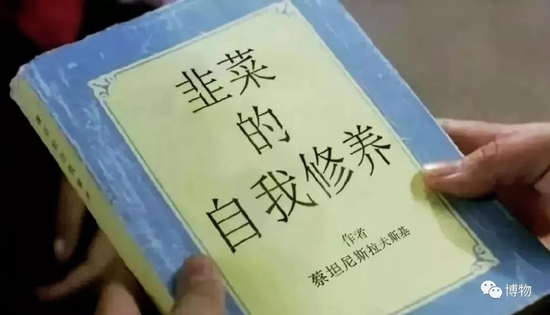 韭菜
的
自我修养
作者
蔡坦尼斯拉夫斯基
博物